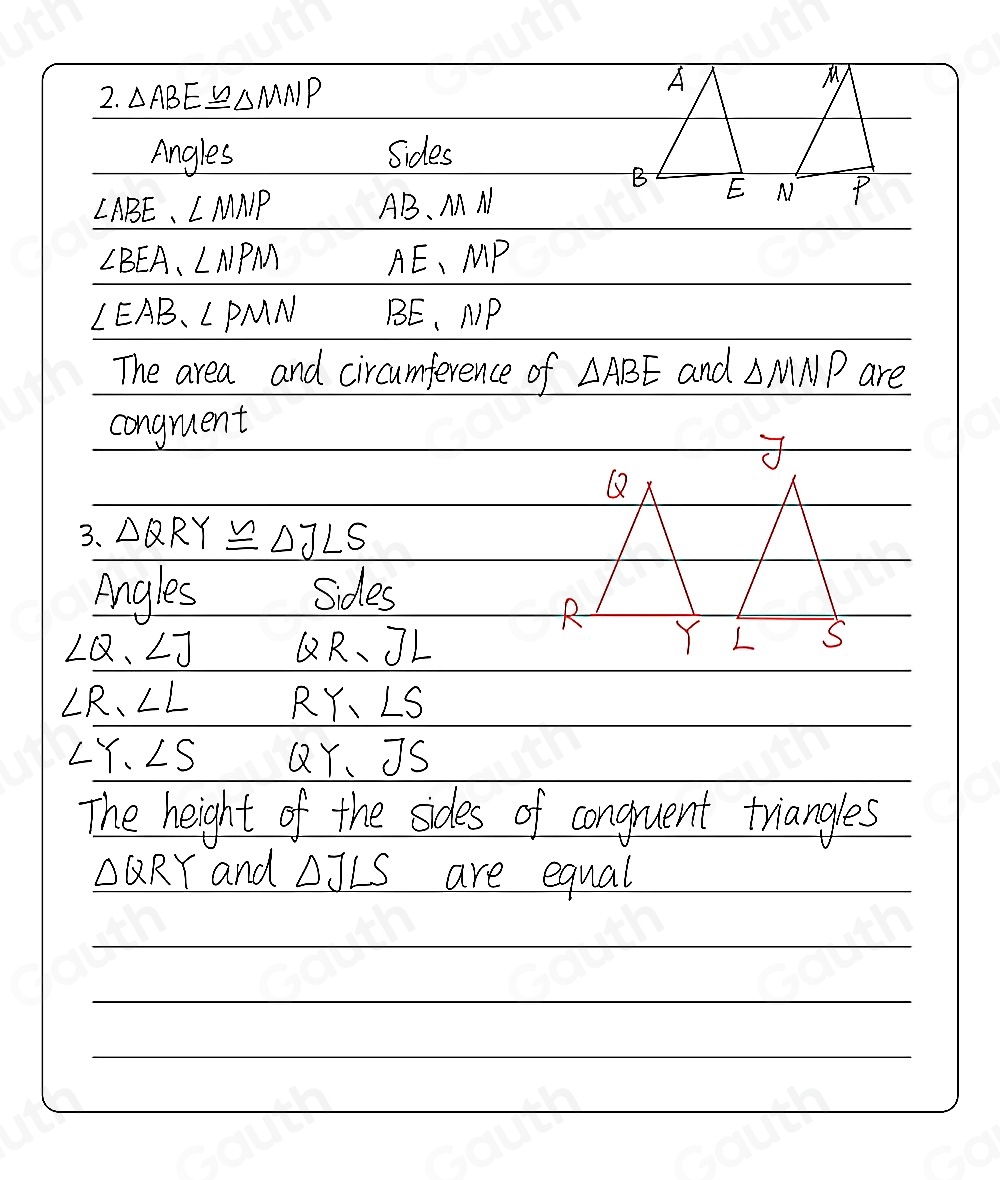 2. △ABE≌△MNP
A
M
B
E
N
P
Angles Sides
∠ABE、∠MNP AB、MN
∠BEA、∠NPM AE、MP
∠EAB、∠PMN BE、NP
The area and circumference of △ABE and △MNP are
congruent
Q
J
R
Y
L
S
3、△QRY ≌ △JLS
Angles Sides
∠Q、∠J QR、JL
∠R、∠L RY、LS
∠Y、∠S QY、JS
The height of the sides of congruent triangles
△QRY and △JLS are equal
Gauth